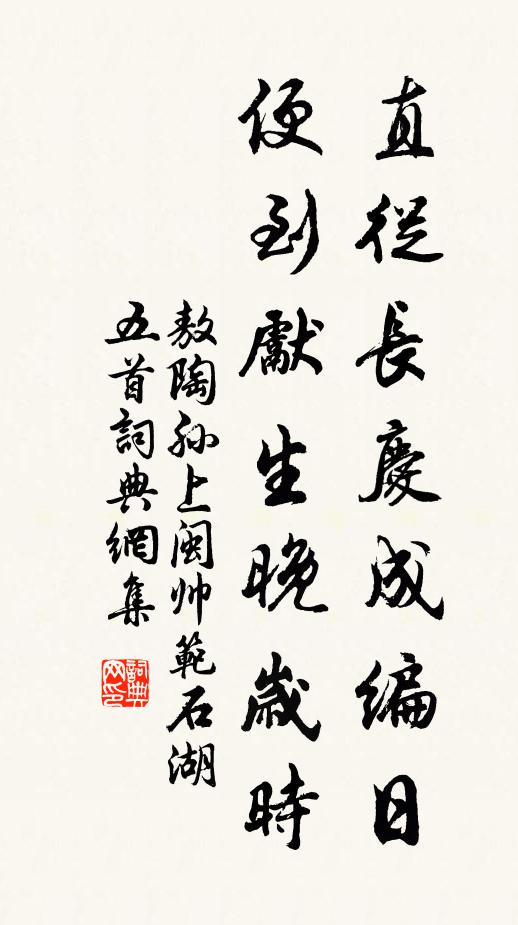 直從長慶成編日
便到獻生晚歲時
敖陶孙上閩帅範石湖
五首詞典網集
詞典网印